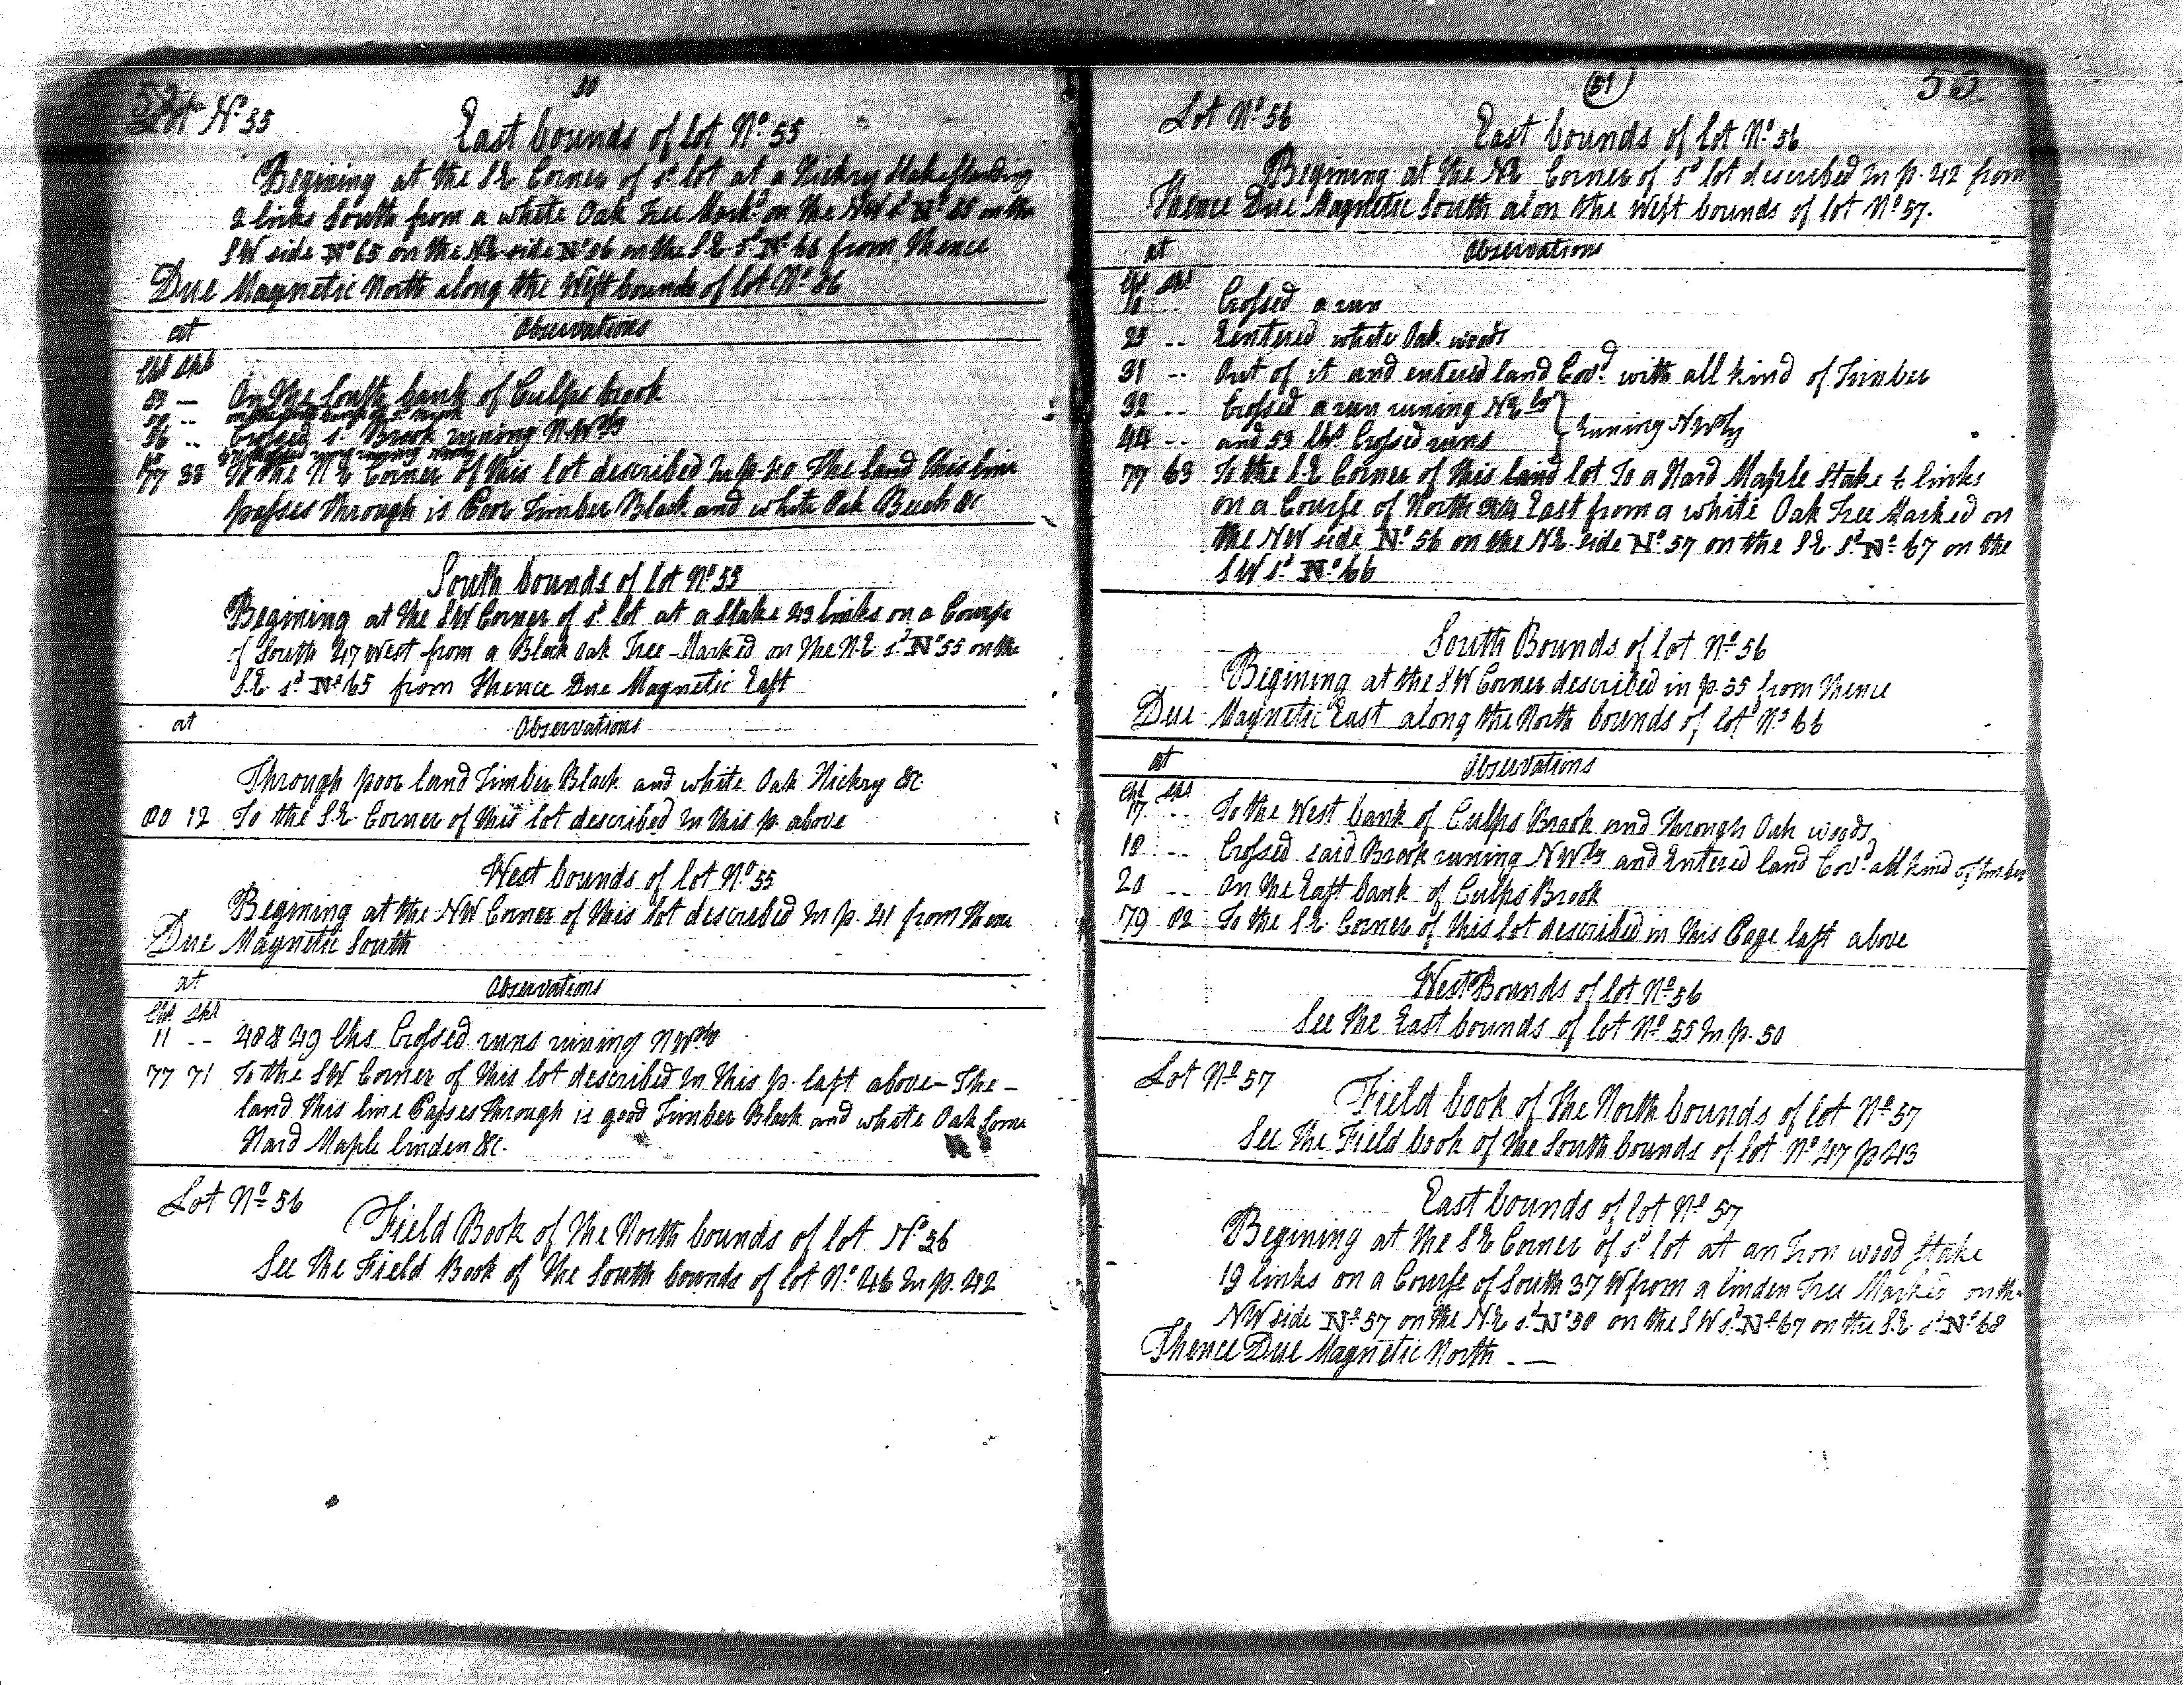 50
Lot No 55
East bounds of lot No. 55
Begining at the SE Corner of sd. lot at a Hickry Stake Standing
2 links South from a white Oak Tree Markd. on the NW sd No 55 on the
SW side No 65 on the NE side No 56 on the SE sd No 66 from thence
Due Magnetic North along the West bounds of lot No. 56
at Observations
Chs Lks
53 — On the South bank of Culps brook
56 .. Crossed sd. Brook runing N.Wly
77 38 To the NE Corner of this lot described In p. 40 The land this line
passes through is Poor Timber Black and white Oak Beech &c
South bounds of lot No. 55
Begining at the SW Corner of sd. lot at a Stake 43 links on a Course
of South 47 West from a Black Oak Tree Marked on the N.E sd. No 55 on the
S.E. sd No 65 from Thence Due Magnetic East
at Observations
Through poor land Timber Black and white Oak Hickry &c.
80 12 To the S.E. Corner of this lot described In this p. above
West bounds of lot No. 55
Begining at the NW Corner of this lot described In p. 41 from thence
Due Magnetic South
at Observations
Chs. Lks
11 .. 40 & 49 Chs Crossed runs runing NWly
77 71 To the SW Corner of this lot described In this p. last above – The –
land this line Passes through is good Timber Black and white Oak Some
Hard Maple linden &c.
Lot No. 56
Field Book of the North bounds of lot No 56
See the Field Book of the South bounds of lot No. 46 In p. 42
51
Lot No. 56
East bounds of lot No. 56
Begining at the NE Corner of sd lot described In p. 42 from
Thence Due Magnetic South alon the west bounds of lot No. 57.
at Observations
Chs. Lks
Crossed a run
25 .. Entered white Oak. woods
31 .. Out of it and entered land Covd. with all kind of Timber
32 .. Crossed a run runing NE ly
44 .. and 53 Chs. Crossed runs } runing NWly
77 63 To the SE Corner of this land lot To a Hard Maple Stake 6 links
on a Course of North East from a white Oak Tree Marked on
the NW side No. 56 on the NE. side No. 57 on the S.E. sd No. 67 on the
SW sd. No. 66
South Bounds of lot No. 56
Begining at the SW Corner described in p. 55 from Thence
Due Magnetic East along the North bounds of lot No. 66
at Observations
Chs Lks
17 .. To the West bank of Culps Brook and Through Oak woods
18 .. Crossed said Brook runing NWly and Entered land Covd. all kind of Timber
20 .. On the East bank of Culps Brook
79 02 To the S.E. Corner of this lot described in this Page last above
West Bounds of lot No. 56
See the East bounds of lot No. 55 In p. 50
Lot No. 57
Field book of the North bounds of lot No. 57
See the Field book of the South bounds of lot No. 47 p 43
East bounds of lot No. 57
Begining at the SE Corner of sd. lot at an Iron wood Stake
19 links on a Course of South 37 W from a linden Tree Marked on the
NW side No. 57 on the N.E sd. No. 58 on the SW sd. No. 67 on the S.E. sd No. 68
Thence Due Magnetic North . —